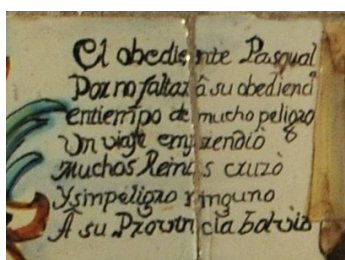 El obediente Pasqual
Por no faltar â su obedienci
entiempo de mucho peligro
Un viaje emprendiò
Muchos Reinos cruzò
Y sinpeligro ninguno
Â su Provincia bolviò